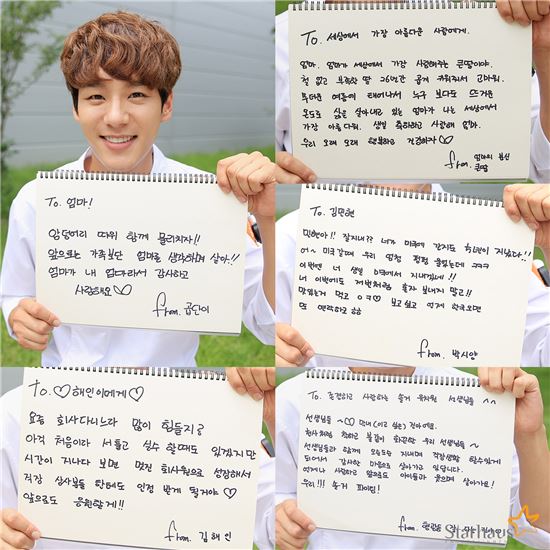 To. 엄마!
암덩어리 따위 함께 물리치자!!
앞으로는 가족보단 엄마를 생각하며 살아!!
엄마가 내 엄마라서 감사하고
사랑해요♡
from. 공단이
To. 세상에서 가장 아름다운 사람에게.
엄마. 엄마가 세상에서 가장 사랑해주는 큰딸이야.
철 없고 부족한 딸 26년간 곱게 키워줘서 고마워.
무더운 여름에 태어나서 누구 보다도 뜨거운
온도로 삶을 살아내고 있는 엄마가 나는 세상에서
가장 아름다워. 생일 축하하고 사랑해 엄마.
우리 오래 오래 행복하고 건강하자♡
from. 엄마의 분신
큰딸
To. 김민현
민현아!! 잘지내?? 너가 미국에 간지도 1년이 지났다!!
어~ 미국갈때 우리 엄청 펑펑 울었는데 ㅋㅋㅋ
이번엔 너 생일 미국에서 지내겠네!!
너 이번에도 저번처럼 혼자 보내지 말고!!
맛있는거 먹고 ♡ 보고싶고 언제 한국오면
또 연락하고 ㅎㅎ
from. 박시얀
To. ♡해인이에게♡
요즘 회사다니느라 많이 힘들지?
아직 처음이라 서툴고 실수 할때도 있겠지만
시간이 지나다 보면 멋진 회사원으로 성장해서
직장 상사분들 한테도 인정 받게 될거야♡
앞으로도 응원할게!!
from. 김해인
To. 존경하고 사랑하는 송거 유치원 선생님들 ^^
선생님들~♡
천사처럼 착하고 불같이 화끈한 우리 선생님들~
선생님들과 함께 오늘도 지내며 직장생활 할수있게
되어서 감사한 마음으로 살아가고 있답니다.
언제나 사랑하고 앞으로도 아이들과 웃으며 살아가요!
우리!!! 송거 파이팅!
from.
Starhaus